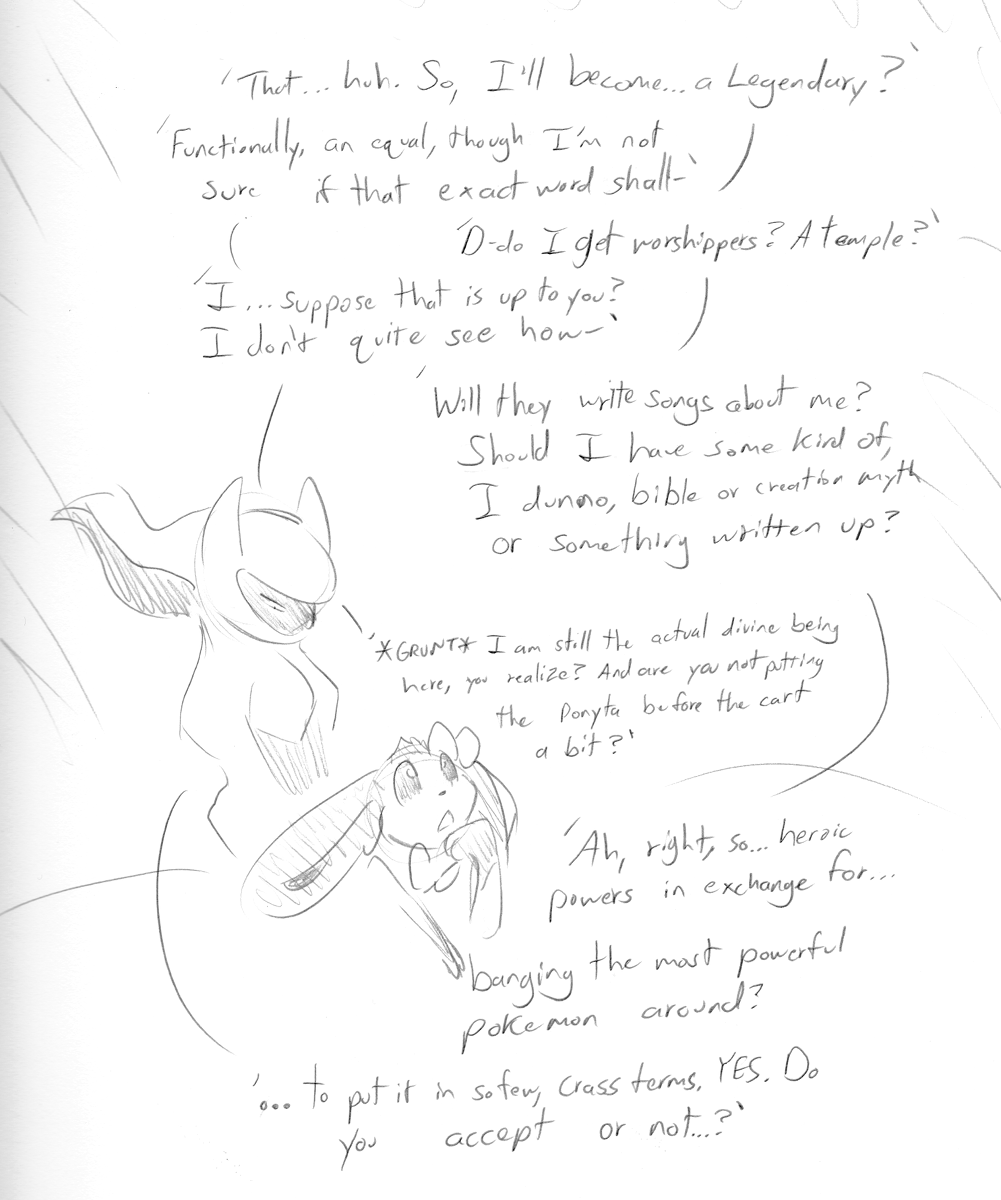 'That... huh. So, I'll become... a Legendary?'
'Functionally, an equal, though I'm not
sure if that exact word shall-'
'D-do I get worshippers? A temple?'
'I... suppose that is up to you?
I don't quite see how-'
'Will they write songs about me?
Should I have some kind of,
I dunno, bible or creation myth
or something written up?
'*GRUNT* I am still the actual divine being
here, you realize? And are you not putting
the Ponyta before the cart
a bit?'
'Ah, right, so... heroic
powers in exchange for...
banging the most powerful
pokemon around?
'... to put it in so few, crass terms, YES. Do
you accept or not...?'